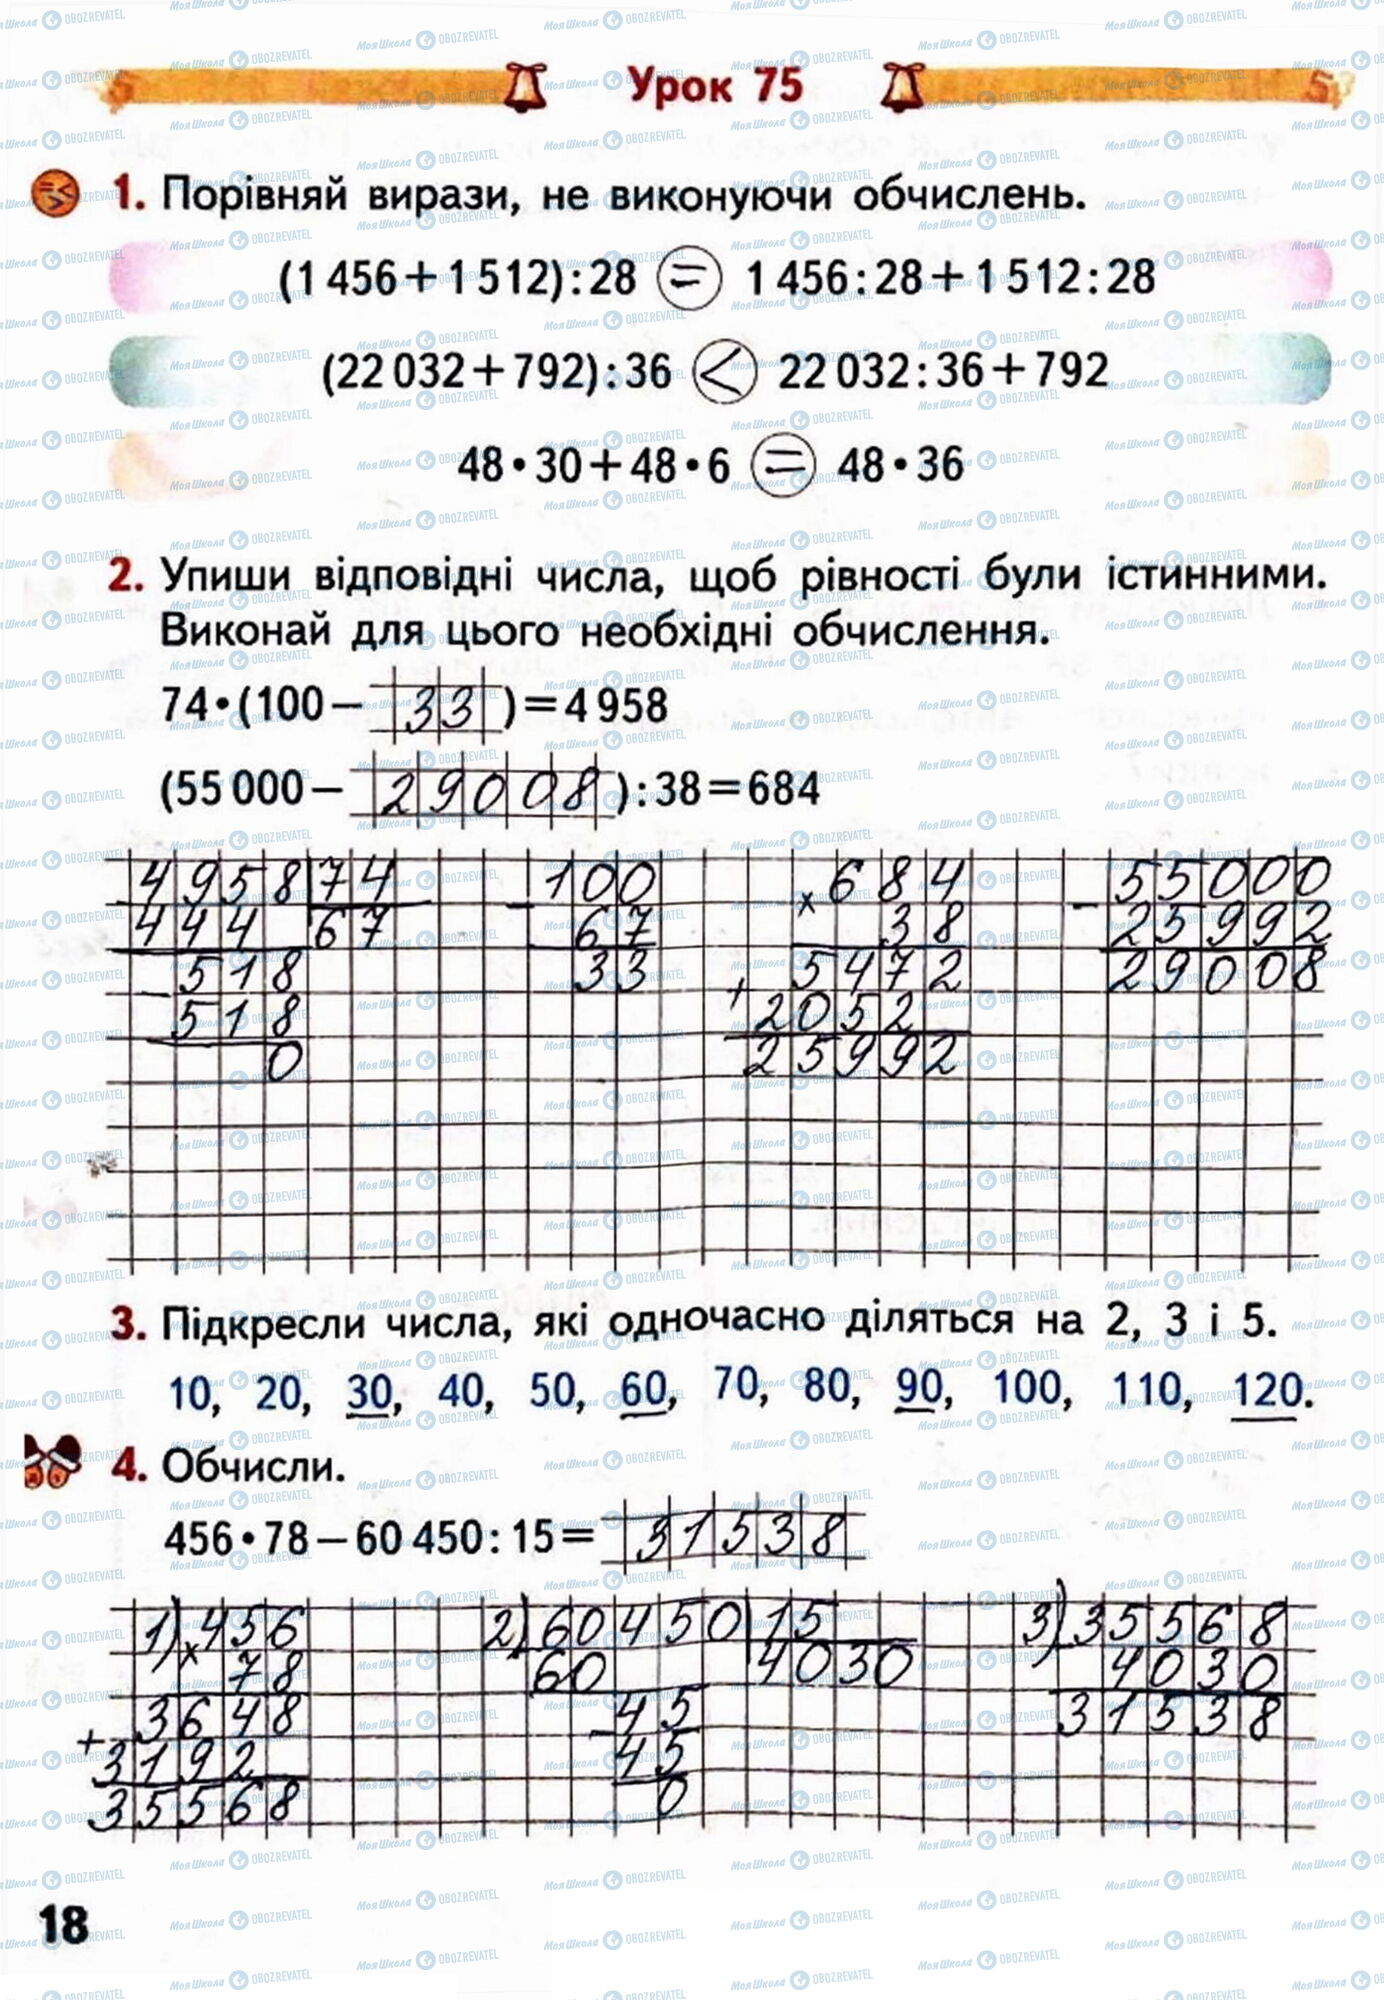 Урок 75
1. Порівняй вирази, не виконуючи обчислень.
(1 456+1 512):28 = 1 456:28+1 512:28
(22 032+792):36 < 22 032:36+792
48•30+48•6 = 48•36
2. Упиши відповідні числа, щоб рівності були істинними.
Виконай для цього необхідні обчислення.
74•(100–33)=4 958
(55 000–29008):38=684
4958 74 100 × 684 – 55000
– 444 67 – 67 38 25992
518 33 5472 29008
– 518 + 2052
0 25992
3. Підкресли числа, які одночасно діляться на 2, 3 і 5.
10, 20, 30, 40, 50, 60, 70, 80, 90, 100, 110, 120.
4. Обчисли.
456•78–60 450:15= 31538
1) × 456 2) 60450 15 3) 35568
78 60 4030 4030
3648 – 45 31538
+ 3192 45
35568 0
18
МояШкола OBOZREVATEL